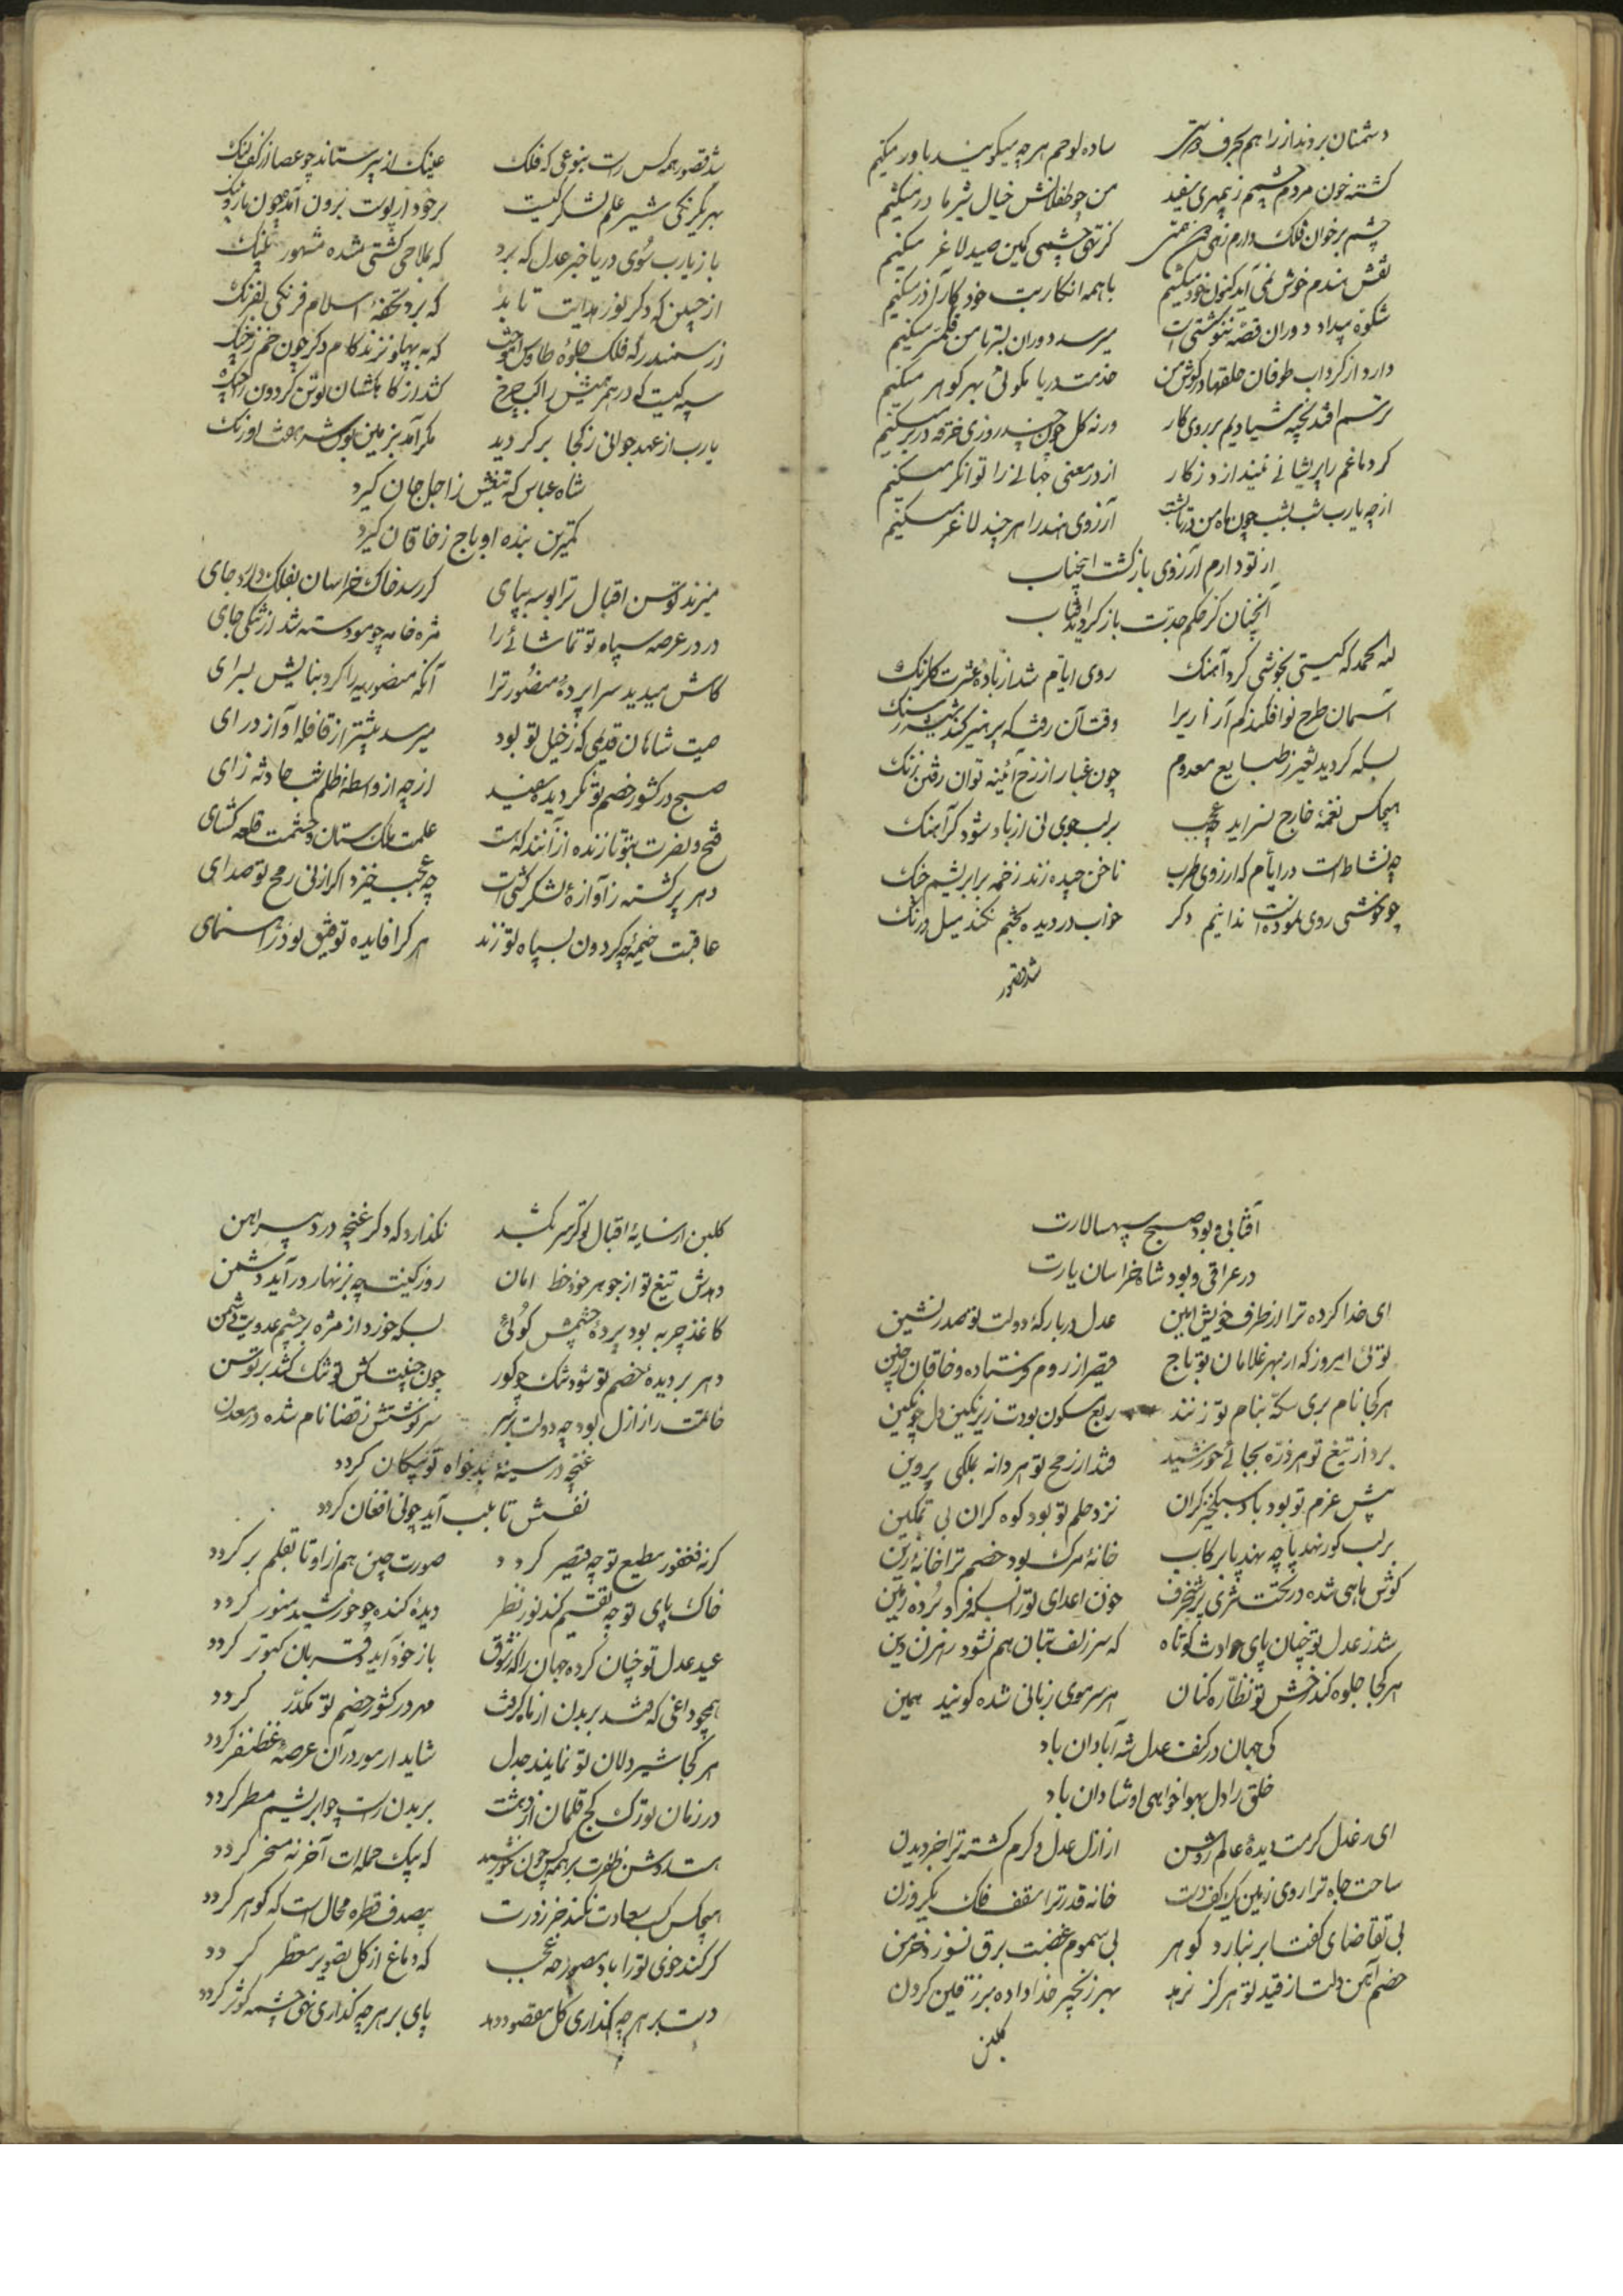 دشمنان بردند از راهم بحرف دوستی ساده لوحم هر چه میگویند باور میکنم
کشته خون مردم چشمم ز بیمهری سفید من چو طفلانش خیال شیر مادر میکنم
چشم بر خوان فلک دارم زهی کز تهی چشمی کمین صید لاغر میکنم
نقش بندم خوش نمی آید کنون خود میکشیم با همه انکار بت خود کار آذر میکنم
شکوه بیداد دوران قصه ننوشتنی است میرسد دوران بسر تا من قلم سر میکنم
دارد از گرداب طوفان حلقها در گوش من خدمت دریا نکوئی بهر گوهر میکنم
ترسم افتد بخیه شیادیم بر روی کار ورنه گل چون چند روزی خرقه در بر میکنم
گر دماغم را پریشانی نیندازد ز کار از در معنی جهانی را توانگر میکنم
از چه یارب شب بشب چون ماه من در آرزوی هند را هر چند لاغر میکنم
از تو دارم آرزوی بازگشت اینجناب
آنچنان کز حکم جدت باز گردید آفتاب
لله الحمد که گیتی بخوشی کرد آهنگ روی ایام شد از باده عشرت گلرنگ
آسمان طرح نو افکند کم آزاریرا وقت آن رفت که پرهیز کند شیشه ز سنگ
بسکه گردید تغیر ز طبایع معدوم چون غبار از رخ آئینه توان رفتن زنگ
هیچکس نغمه خارج نسراید چه عجب بر لب جوی نی از باد شود گر آهنگ
چه نشاط است در ایام که از روی طرب ناخن چیده زند زخمه بر ابریشم چنگ
چو خوشی روی نموده است ندانیم دگر خواب در دیده بختم نکند میل درنگ
شد قصور
شد قصور همه کس راست بنوعی که فلک عینک از پیر ستاند چو عصا از کف لنگ
بهر یکرنگی شیر علم لشکر کیست بر خود از پوست برون آمد چون مار پلنگ
باز یارب سوی دریا خبر عدل که برد که بملاحی کشتی شده مشهور نهنگ
از جبین که دگر نور هدایت تابد که برد تحفه اسلام فرنگی بفرنگ
ز سمند که فلک جلوه طاوس که به پهلو نزند گام دگر چون خرچنگ
سپه کیست که در هر تبش راکب چرخ کشد از کاهکشان توسن گردون را تنگ
یارب از عهد جوانی ز کجا برگردید مگر آمد بزمین بوس شه هفت اورنگ
شاه عباس که تیغش ز اجل جان گیرد
کمترین بنده او باج ز خاقان گیرد
میزند توسن اقبال ترا بوسه بپای گر رسد خاک خراسان بفلک دارد جای
در در عرصه سپاه تو تماشائی را مژه خامه چو مو دسته شد از تنگی جای
کاش میدید سراپرده منصور ترا آنکه منصوریه را کرد بنایش بسرای
صیت شاهان قدیمی که ز خیل تو بود میرسد پیشتر از قافله آواز درای
صبح در کشور خصم تو نگردیده سفید از چه از واسطه ظلم شب حادثه زای
فتح و نصرت بتو نازنده از آنند که هست علمت ملک ستان و حشمت قلعه گشای
دهر پر گشته ز آوازه لشکر کشیت چه عجب خیزد اگر از نی رمح تو صدای
عاقبت خیمه چه گردون بسپاه تو زند هر کرا فایده توفیق بود راهنمای
آفتابی و بود صبح سپهسالارت
در عراقی و بود شاه خراسان یارت
ای خدا کرده ترا از طرف خویش امین عدل در بارگه دولت تو صدر نشین
توئی امروز که از بهر غلامان تو تاج قیصر از روم فرستاده و خاقان از چین
هر کجا نام بری سکه بنام تو زنند ربع مسکون بودت زیر نگین دل چو نگین
برد از تیغ تو هر ذره بجائی خورشید فتد از رمح تو هر دانه بملکی پروین
پیش عزم تو بود باد سبکخیز گران نزد حلم تو بود کوه گران بی تمکین
بر لب گور نهد پا چه نهد پا برکاب خانه مرگ بود خصم ترا خانه زین
گوش ماهی شده در تحت ثری پر شنجرف خون اعدای تو از بسکه فرو برده زمین
شد ز عدل تو چنان پای حوادث کوتاه که سر زلف بتان هم نشود رهزن دین
هر کجا جلوه کند رخش تو نظاره کنان هر سر موی زبانی شده گویند همین
کی جهان در کنف عدل شه آبادان باد
خلق را دل بهواخواهی او شادان باد
ای ز عدل کرمت دیده عالم روشن از ازل عدل و کرم گشته ترا جزو بدن
ساحت جاه ترا روی زمین یک کف دست خانه قدر ترا سقف فلک یک روزن
بی تقاضای کفت ابر نبارد گوهر بی سموم غضبت برق نسوزد خرمن
خصم آهن دلت از قید تو هرگز نرهد بهر زنجیر خدا داده بزرفین گردن
گلبن
گلبن از سایه اقبال تو گر سر بکشد نگذارد که دگر غنچه درد پیراهن
دهدش تیغ تو از جوهر خود خط امان روز کینت چه بزنهار در آید دشمن
کاغذ چربه بود پرده چشمش گوئی بسکه خورد از مژه بر چشم عدویت سوزن
دهر بر دیده خصم تو شود تنگ چو گور چون جنیبت کش تو تنگ کشد بر توسن
خاتمت را ز ازل بود چه دولت بر سر سرنوشتش ز قضا نام شده در معدن
غنچه در سینه بدخواه تو پیکان گردد
نفسش تا بلب آید چو نی افغان گردد
گر نه فغفور مطیع تو چه قیصر گردد صورت چین هم از او تا بقلم بر گردد
خاک پای تو چه تقسیم کند نور نظر دیده کنده چو خورشید منور گردد
عید عدل تو چنان کرده جهان را که ز ذوق باز خود آید و قربان کبوتر گردد
همچو داغی که فتد بر بدن از ماه گرفت مهر در کشور خصم تو مکدر گردد
هر کجا شیر دلان تو نمایند جدل شاید ار مور در آن عرصه غضنفر گردد
در زمان تو ز ترک کج قلمان از دهشت بر بدن راست چو ابریشم مسطر گردد
هست روشن ظفرت بر همه کس چون خورشید که بیک حمله ات آخر نه مسخر گردد
هیچکس کسب سعادت نکند جز ز درت بیصدف قطره محال است که گوهر گردد
گر کند خوی تو را یاد مصور چه عجب که دماغ از گل تصویر معطر گردد
دست بر هر چه گذاری گل مقصود دهد پای بر هر چه گذاری نهی چشمه کوثر گردد